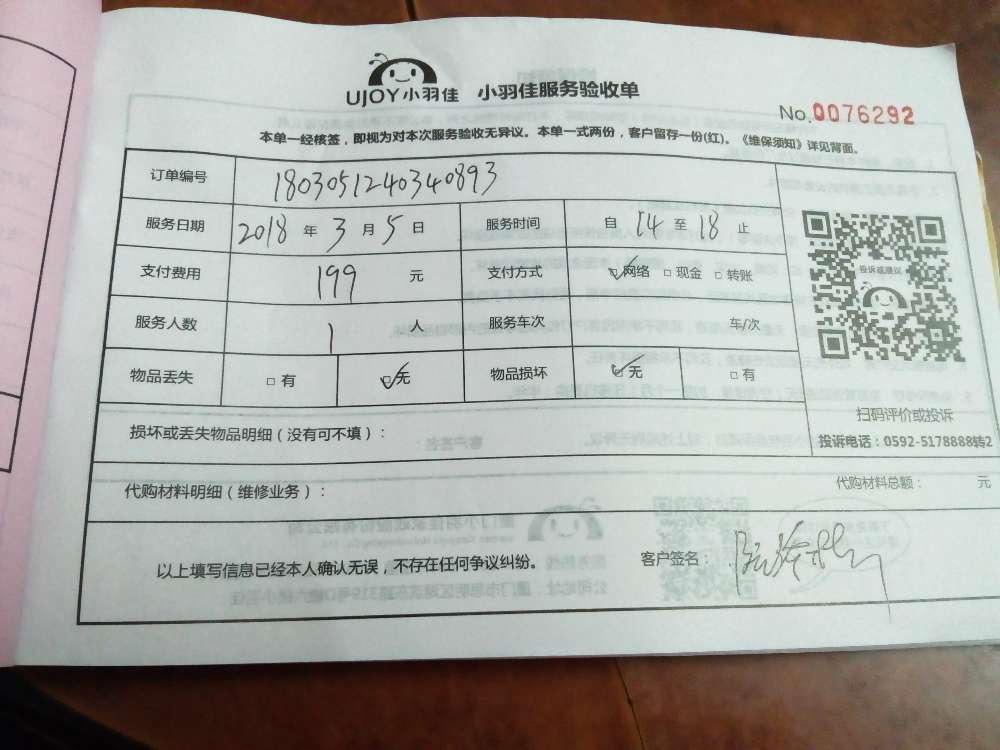 UJOY小羽佳 小羽佳服务验收单
No.0076292
本单一经核签，即视为对本次服务验收无异议。本单一式两份，客户留存一份(红)。《维保须知》详见背面。
订单编号 1803051240340893
服务日期 2018 年 3 月 5 日 服务时间 自 14 至 18 止
支付费用 199 元 支付方式 ☑网络 □现金 □转账
服务人数 1 人 服务车次 车/次
物品丢失 □有 ☑无 物品损坏 ☑无 □有
投诉或建议
扫码评价或投诉
投诉电话：0592-5178888转2
损坏或丢失物品明细（没有可不填）：
代购材料明细（维修业务）： 代购材料总额： 元
以上填写信息已经本人确认无误，不存在任何争议纠纷。 客户签名：